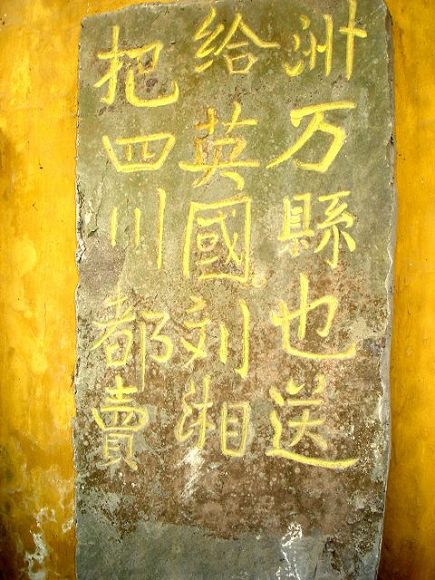 洲万縣也送
给英國刘湘
把四川都賣